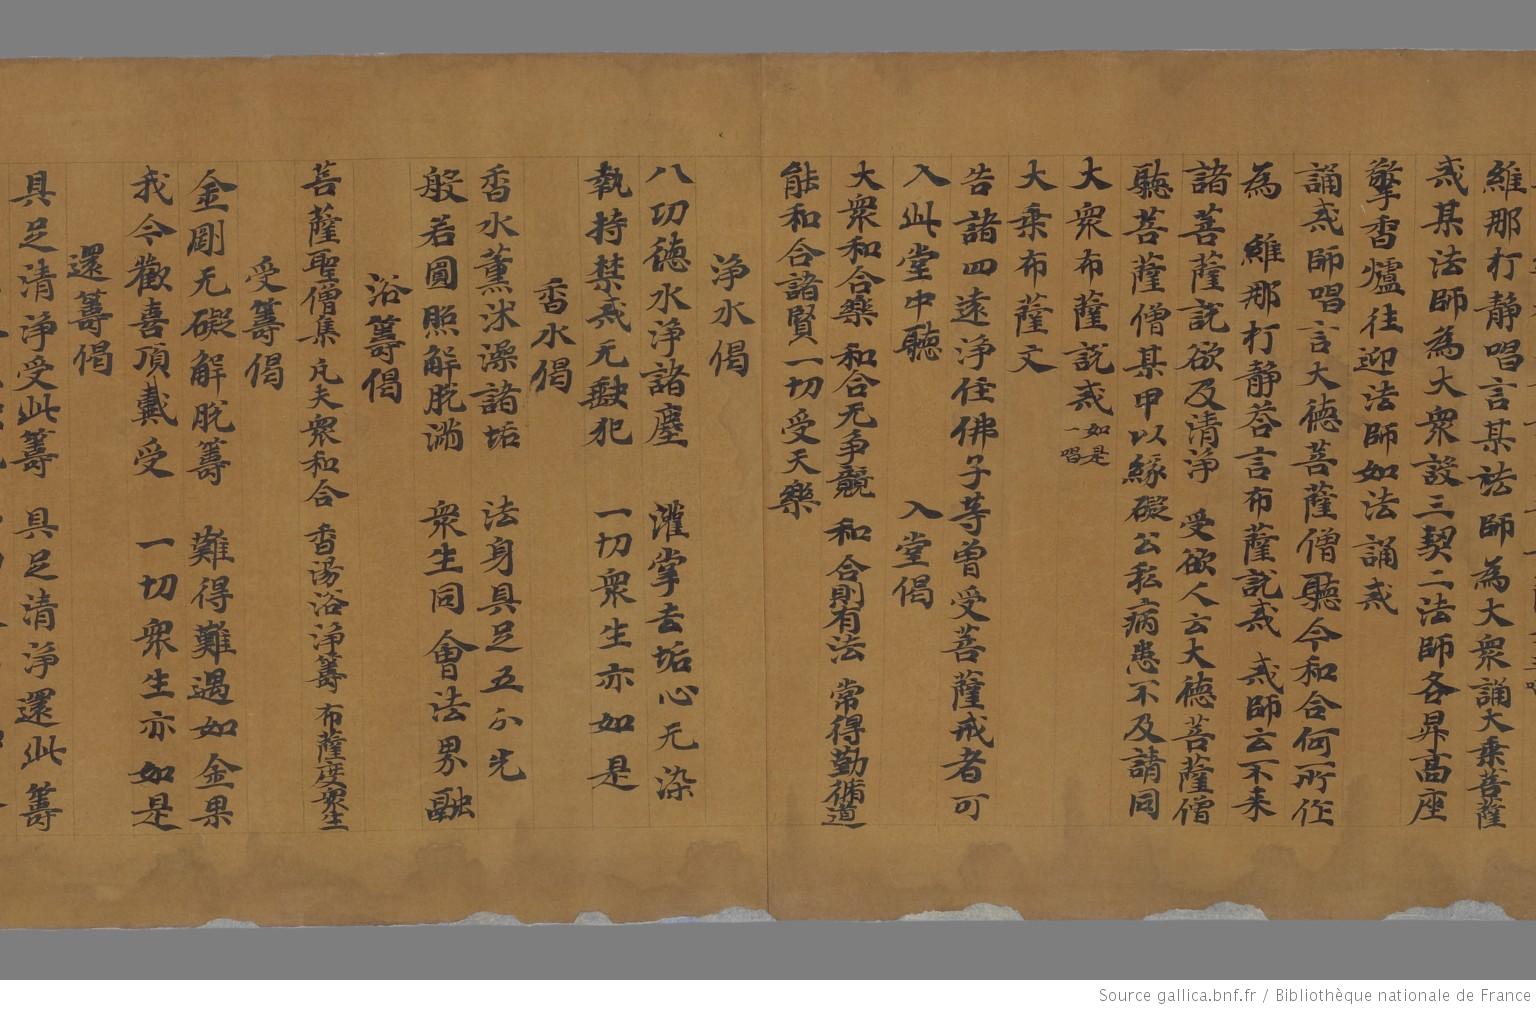 維那打静唱言某法師為大衆誦大乗菩薩
戒某法師為大衆設三契二法師各昇髙座
擎香爐往迎法師如法誦戒
誦戒師唱言大德菩薩僧聽今和合何所作
為 維那打静荅言布薩説戒 戒師云不来
諸菩薩説欲及清浄 受欲人云大德菩薩僧
聽菩薩僧某甲以緣礙公私病患不及請同
大衆布薩説戒 如是一唱
大乗布薩文
告諸四遠浄住佛子等曽受菩薩戒者可
入此堂中聽 入堂偈
大衆和合樂 和合无爭競 和合則有法 常得勤脩道
能和合諸賢 一切受天樂
浄水偈
八功德水浄諸塵 灌掌去垢心无染
執持禁戒无𡙇犯 一切衆生亦如是
香水偈
香水薰沐澡諸垢 法身具足五分光
般若圓照解脱滿 衆生同會法界融
浴籌偈
菩薩聖僧集 凡夫衆和合 香湯浴浄籌 布薩度衆生
受籌偈
金剛无礙解脱籌 難得難遇如金果
我今歡喜頂戴受 一切衆生亦如是
還籌偈
具足清浄受此籌 具足清浄還此籌
Source gallica.bnf.fr / Bibliothèque nationale de France